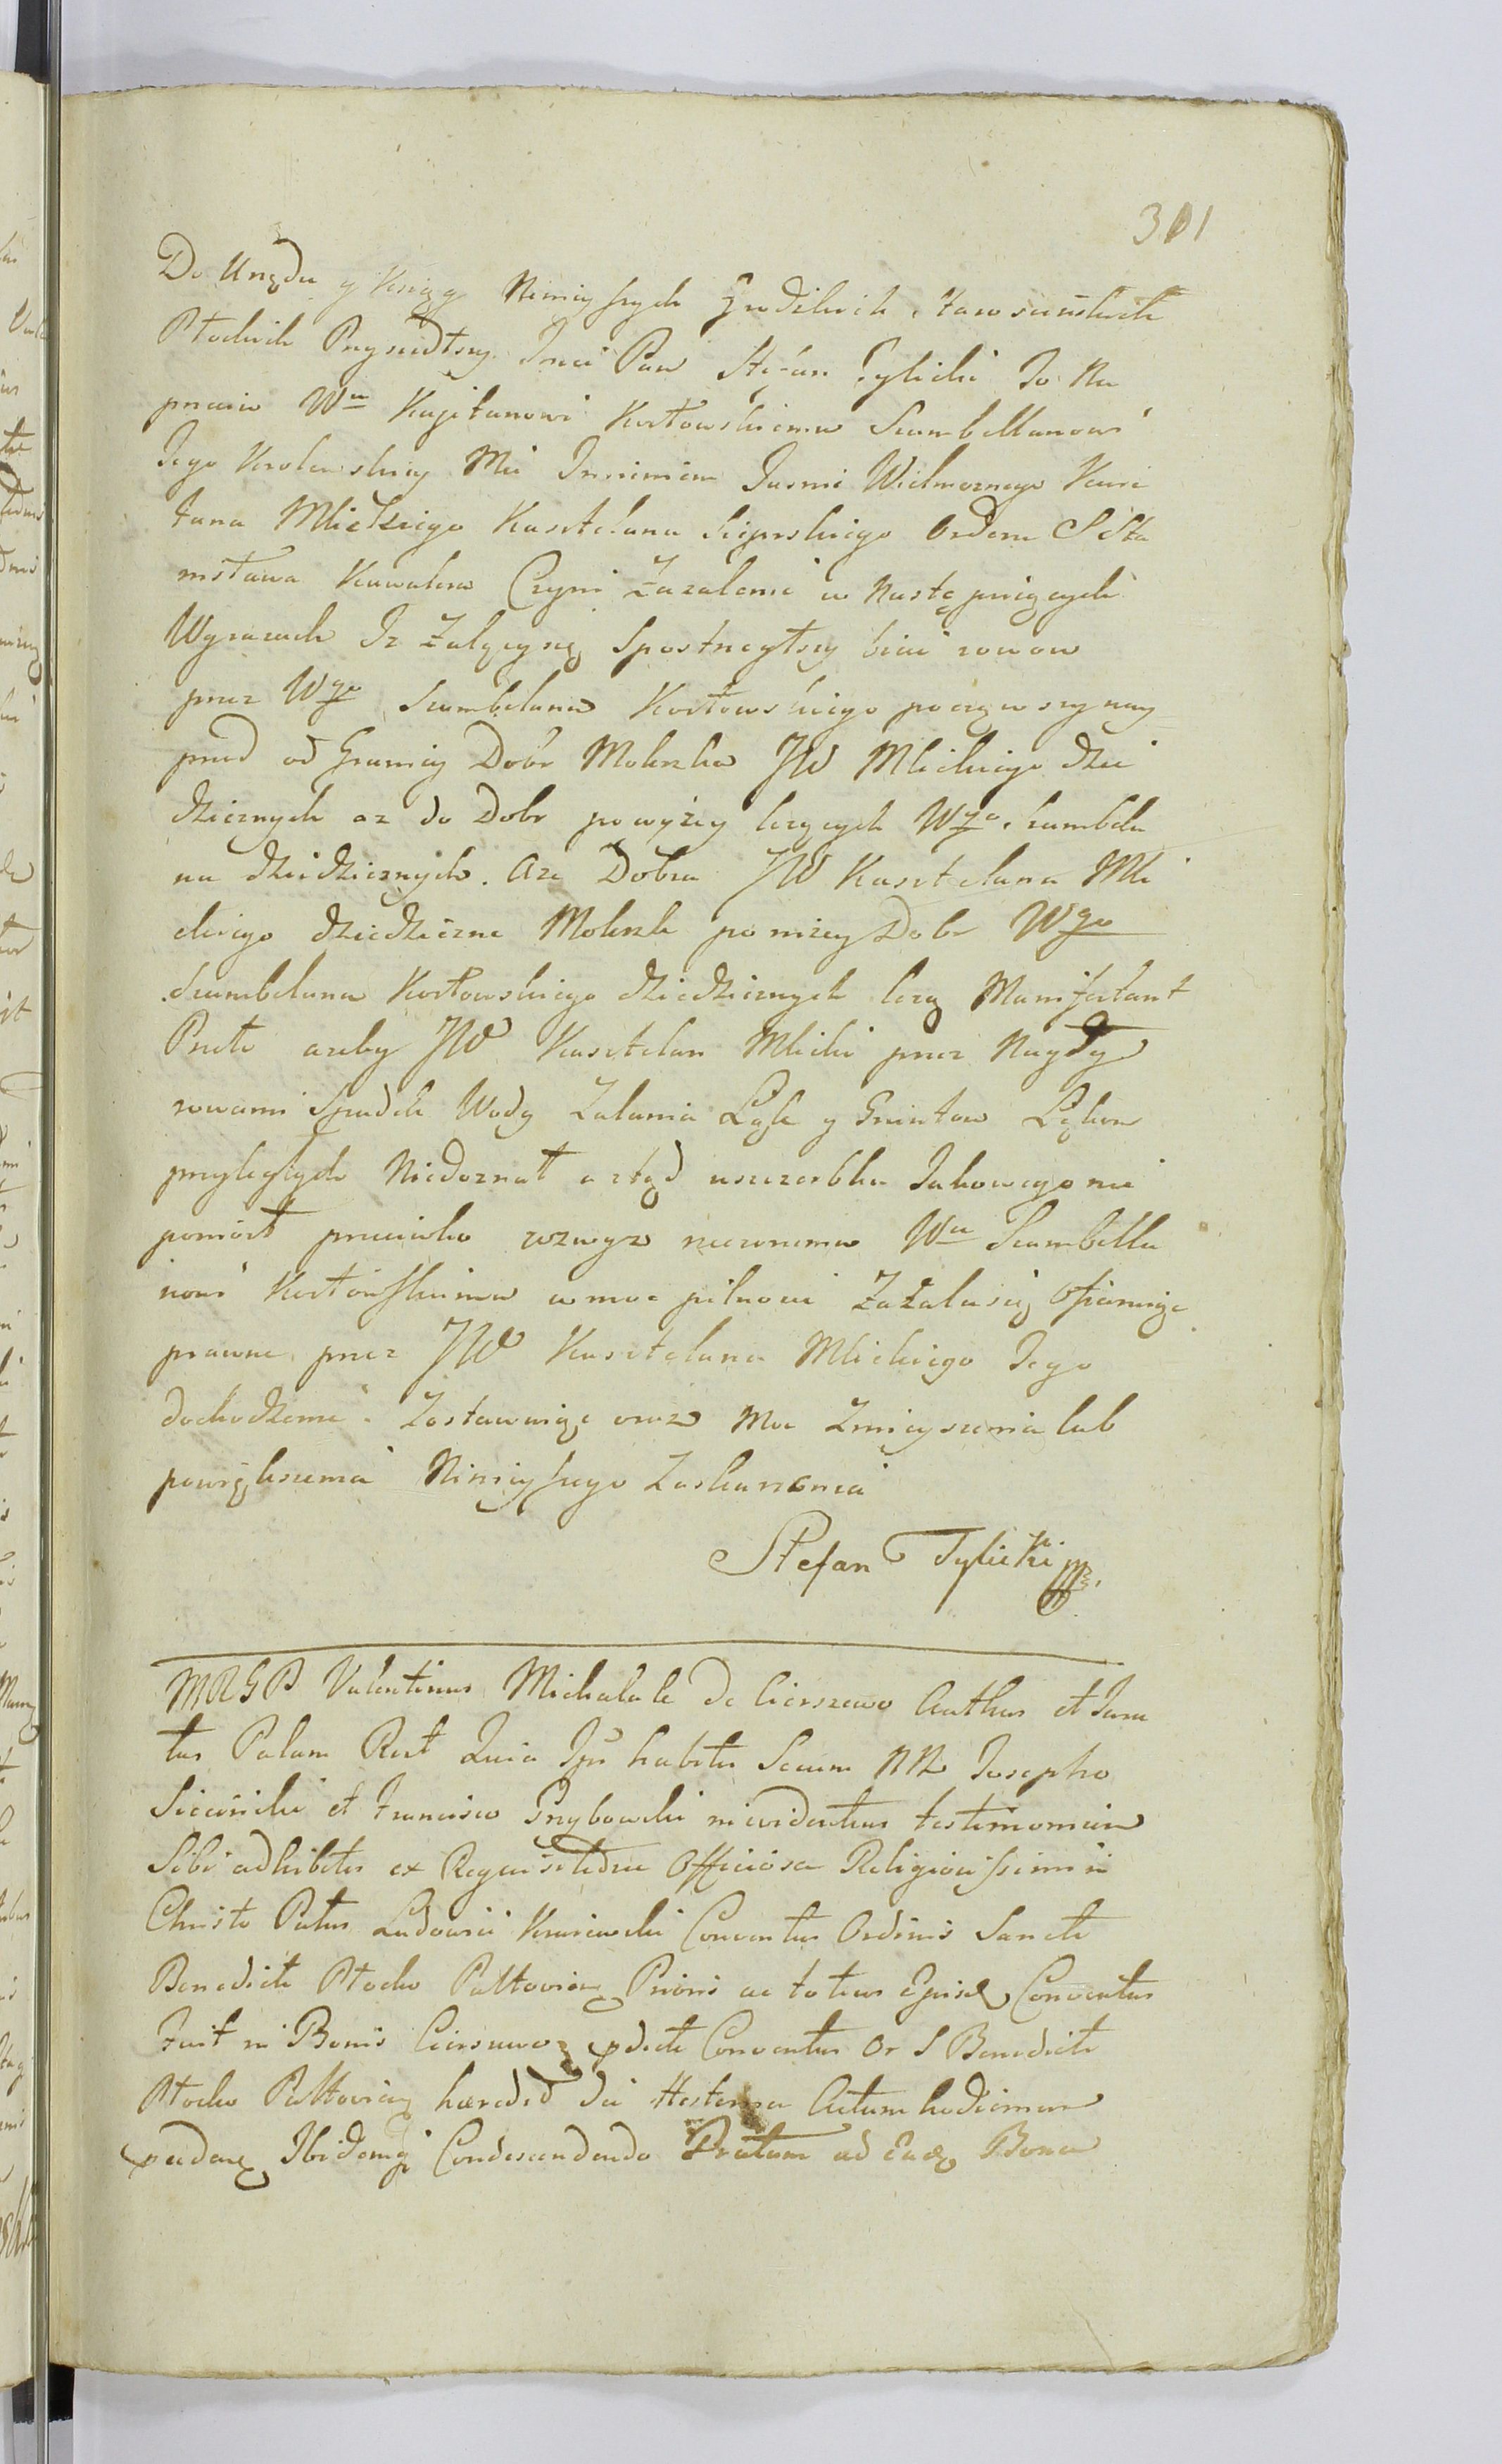 301
Do Urzędu y Xiąg Ninieyszych Grodzkich Staroscińskich
Płockich Przyszedłszy Imci Pan Stefan Tylicki Jo Na
przeciw Wu Kajetanowi Kozłowskiemu Szambellanowi
Jego Krolewskiey Mci Imieniem Jasnie Wielmoznego Kaie
tana Mlickiego Kasztelana Sieprskiego Orderu S Sta
nisława Kawalera Czyni Zazalenie w Następuiących
Wyrazach Iz Zalący się Spostrzegłszy bicie rowow
przez Wgo Szambelana Kozłowskiego począwszy nay
przod od Granicy Dobr Mokrzka JW Mlickiego dzie
dzicznych az do Dobr powyżey lezących Wgo Szambela
na dziedzicznych. A ze Dobra JW Kasztelana Mli
ckiego dziedziczne Mokrzk ponizey Dobr Wgo
Szambelana Kozłowskiego dziedzicznych lezą Manifestant
Przeto azeby JW Kasztelan Mlicki przez Nagły
rowami Spadek Wody Zalania Łąk y Gruntow Łąkom
przyległych Niedoznał a ztąd uszczerbku Jakowego nie
poniosł przeciwko wzwyz rzeczonemu Wu Szambella
nowi Kozłowskiemu w moc pilnowi Zażala się Ofiaruiąc
prawne przez JW Kasztelana Mlickiego Jego
dochodzenie. Zostawuiąc oraz Moc Zmnieyszenia lub
powiększenia Ninieyszego Zaskarzenia
Stefan Tylicki mp.
MRGP Valentinus Michalak de Cierszewo Authus et Jura
tus Palam Rect Quia Ips habitis Secum NN Josepho
Siecinski et Francisco Grzybowski in evidentius testimonium
Sibi adhibitis ex Requisitione Officiosa Religiosissimi in
Christo Patris Ludovici Krasiewski Conventus Ordinis Sancti
Benedicti Plocko Pultovien Prioris ac totius Ejusd Conventus
Fuit in Bonis Cierszewo pdicti Conventus Or S Benedicti
Plocko Pultovien haered die Hesterna Actum hodiernum
pcedens Ibidemq Condescendendo Pratum ad Eadem Bona